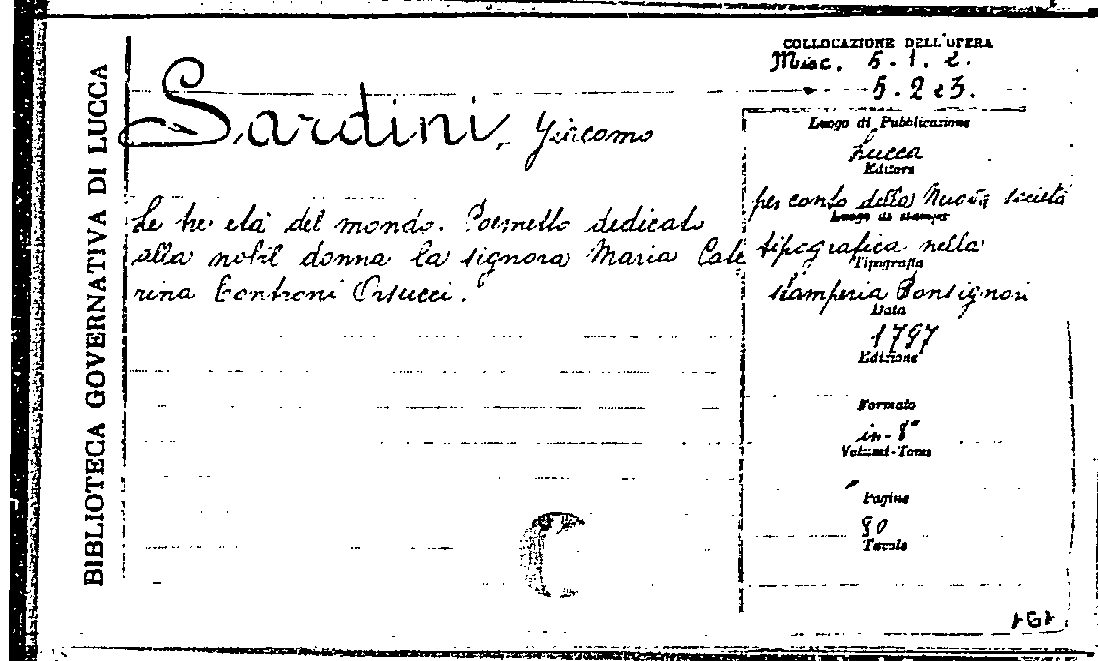 BIBLIOTECA GOVERNATIVA DI LUCCA
COLLOCAZIONE DELL'OPERA
Misc. 5.1.2.
5.2 e 3.
Sardini, Giacomo
Le tre età del mondo. Poemetto dedicato
alla nobil donna la signora Maria Cate
rina Controni Orsucci.
Luogo di Pubblicazione
Lucca
Editore
per conto della Nuova società
Luogo di stampa
tipografica nella
Tipografia
stamperia Bonsignori
Data
1797
Edizione
Formato
in-8°
Volumi-Tomo
Pagine
Tavole
C